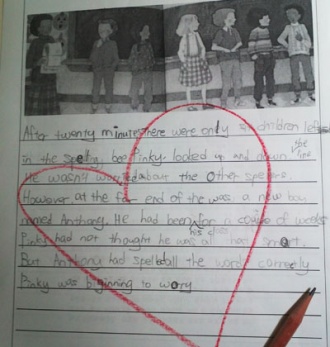 After twenty minutes there were only six children left
in the spelling bee. Pinky looked up and down the line
He wasn't worried about the other spellers.
However at the far end of the was a new boy
named Anthony. He had been for a couple of weeks
his class
Pinky had not thought he was all that smart.
But Anthony had spelled all the words correctly
Pinky was beginning to worry